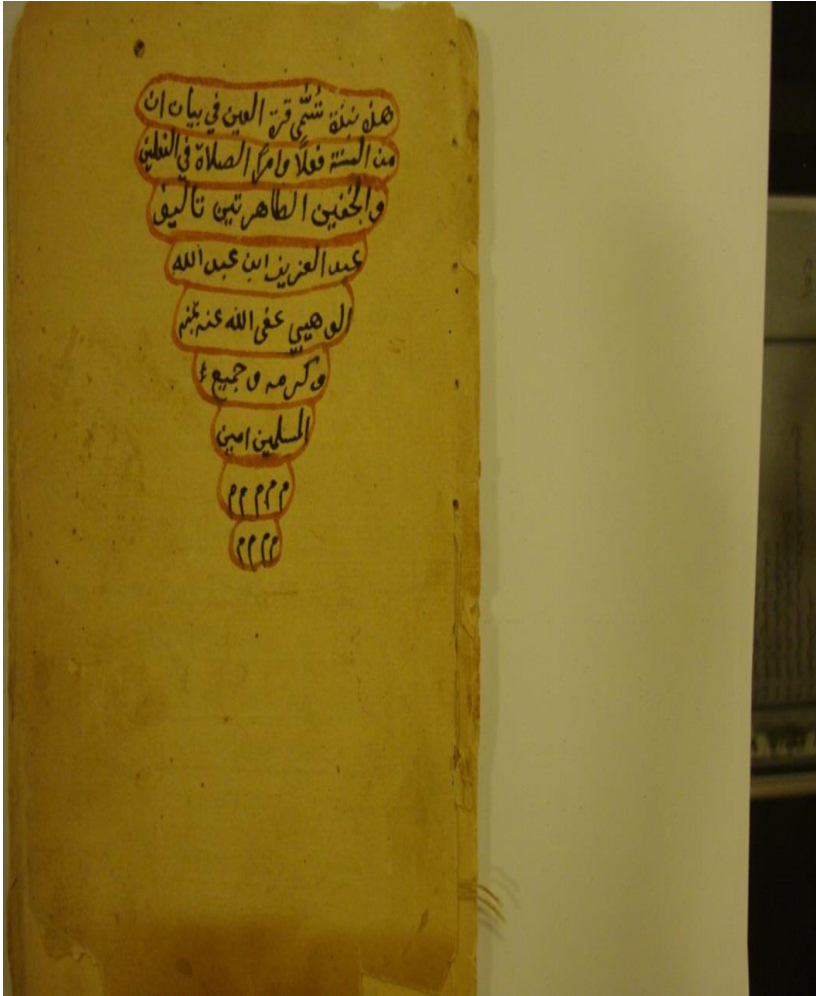 هذه نبذة تسمى قرة العين في بيان ان
من السنة فعلًا وامرًا الصلاة في النعلين
والخفين الطاهرتين تاليف
عبد العزيز ابن عبد الله
الوهيبي عفى الله عنه بمنه
وكرمه وجميع
المسلمين امين
م م م م م
م م م م